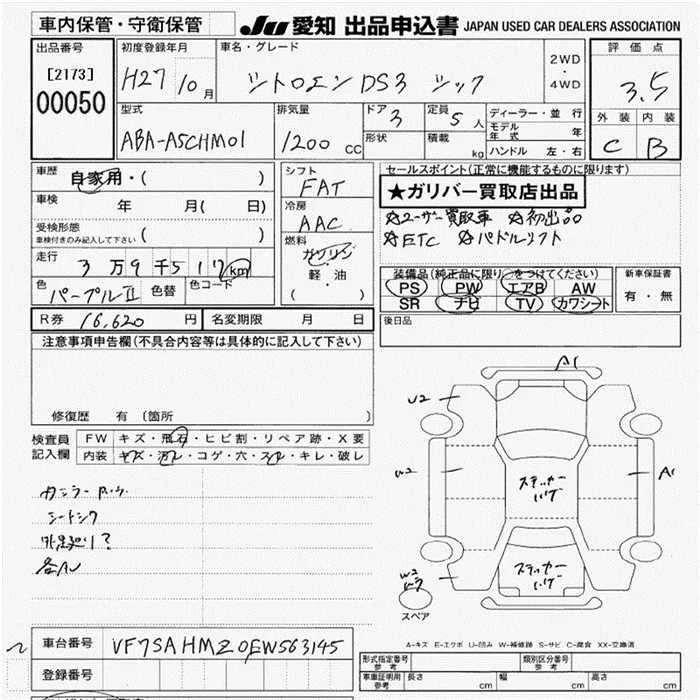 車内保管・守衛保管 JU 愛知 出品申込書 JAPAN USED CAR DEALERS ASSOCIATION
出品番号 初度登録年月 車名・グレード 2WD・4WD 評価点
[2173] H27 10月 シトロエン DS3 シック 3.5
00050
型式 排気量 ドア 3 定員 5人 ディーラー・並行 外装 内装
ABA-A5CHM01 1200 CC 形状 積載 kg モデル年式 年 C B
ハンドル 左・右
車歴 自家用・( ) シフト FAT セールスポイント(正常に機能するものに限ります)
車検 年 月( 日) 冷房 AAC ★ガリバー買取店出品
受検形態 ( ) ☆ユーザー買取車 ☆初出品
車検付きのみ記入して下さい 燃料 ガソリン・軽油 ( ) ☆ETC ☆パドルシフト
走行 3万9千517km
色 パープルII 色替 色コード
装備品(純正品に限り○をつけてください) 新車保証書
PS PW エアB AW 有・無
SR ナビ TV カワシート
R券 16,620円 名変期限 月 日 後日品
注意事項申告欄(不具合内容等は具体的に記入して下さい)
修復歴 有 (箇所 )
検査員記入欄 FW キズ・飛石・ヒビ割・リペア跡・X要
内装 キズ・汚レ・コゲ・穴・スレ・キレ・破レ
シートシワ
各AU
A1
U2
W2
A1
ステッカーハゲ
ステッカーハゲ
W2
スペア
A-キズ E-エクボ U-凹み W-補修跡 S-サビ C-腐食 XX-交換済
車台番号 VF7SAHMZ0EW563145
登録番号
形式指定番号 参考 類別区分番号 参考
車庫証明用 参考 長さ cm 幅 cm 高さ cm